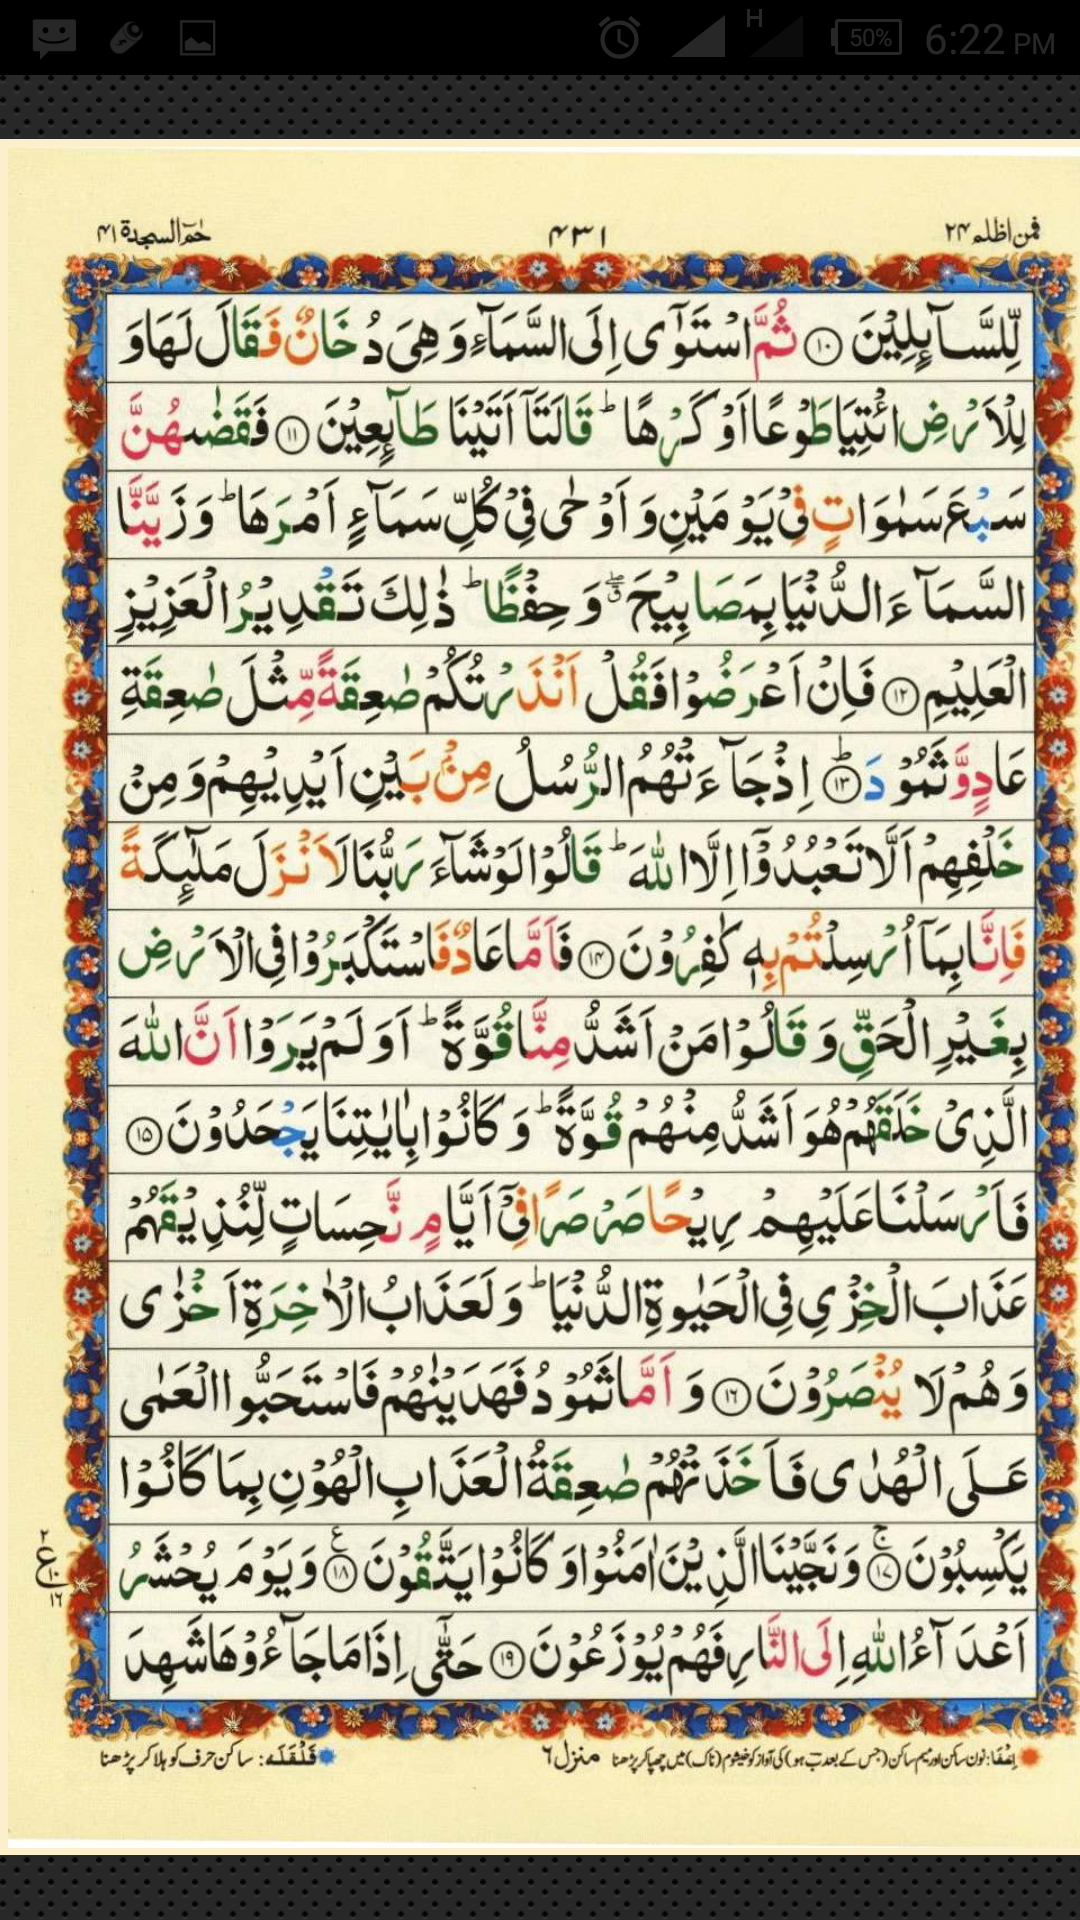 50% 6:22 PM
H
فمن اظلم ۲۴ ۴۳۱ حٰمٓ السجدة ۴۱
لِّلسَّآىِٕلِیْنَ ۱۰ ثُمَّ اسْتَوٰۤی اِلَی السَّمَآءِ وَ هِیَ دُخَانٌ فَقَالَ لَهَا وَ
لِلْاَرْضِ ائْتِیَا طَوْعًا اَوْ كَرْهًا ؕ قَالَتَاۤ اَتَیْنَا طَآىِٕعِیْنَ ۱۱ فَقَضٰىهُنَّ
سَبْعَ سَمٰوَاتٍ فِیْ یَوْمَیْنِ وَ اَوْحٰی فِیْ كُلِّ سَمَآءٍ اَمْرَهَا ؕ وَ زَیَّنَّا
السَّمَآءَ الدُّنْیَا بِمَصَابِیْحَ ۖۗ وَ حِفْظًا ؕ ذٰلِكَ تَقْدِیْرُ الْعَزِیْزِ
الْعَلِیْمِ ۱۲ فَاِنْ اَعْرَضُوْا فَقُلْ اَنْذَرْتُكُمْ صٰعِقَةً مِّثْلَ صٰعِقَةِ
عَادٍ وَّ ثَمُوْدَ ۱۳ؕ اِذْ جَآءَتْهُمُ الرُّسُلُ مِنْۢ بَیْنِ اَیْدِیْهِمْ وَ مِنْ
خَلْفِهِمْ اَلَّا تَعْبُدُوْۤا اِلَّا اللّٰهَ ؕ قَالُوْا لَوْ شَآءَ رَبُّنَا لَاَنْزَلَ مَلٰٓىِٕكَةً
فَاِنَّا بِمَاۤ اُرْسِلْتُمْ بِهٖ كٰفِرُوْنَ ۱۴ فَاَمَّا عَادٌ فَاسْتَكْبَرُوْا فِی الْاَرْضِ
بِغَیْرِ الْحَقِّ وَ قَالُوْا مَنْ اَشَدُّ مِنَّا قُوَّةً ؕ اَوَ لَمْ یَرَوْا اَنَّ اللّٰهَ
الَّذِیْ خَلَقَهُمْ هُوَ اَشَدُّ مِنْهُمْ قُوَّةً ؕ وَ كَانُوْا بِاٰیٰتِنَا یَجْحَدُوْنَ ۱۵
فَاَرْسَلْنَا عَلَیْهِمْ رِیْحًا صَرْصَرًا فِیْۤ اَیَّامٍ نَّحِسَاتٍ لِّنُذِیْقَهُمْ
عَذَابَ الْخِزْیِ فِی الْحَیٰوةِ الدُّنْیَا ؕ وَ لَعَذَابُ الْاٰخِرَةِ اَخْزٰی
وَ هُمْ لَا یُنْصَرُوْنَ ۱۶ وَ اَمَّا ثَمُوْدُ فَهَدَیْنٰهُمْ فَاسْتَحَبُّوا الْعَمٰی
عَلَی الْهُدٰی فَاَخَذَتْهُمْ صٰعِقَةُ الْعَذَابِ الْهُوْنِ بِمَا كَانُوْا
یَكْسِبُوْنَ ۱۷ۚ وَ نَجَّیْنَا الَّذِیْنَ اٰمَنُوْا وَ كَانُوْا یَتَّقُوْنَ ۱۸ وَ یَوْمَ یُحْشَرُ
اَعْدَآءُ اللّٰهِ اِلَی النَّارِ فَهُمْ یُوْزَعُوْنَ ۱۹ حَتّٰۤی اِذَا مَا جَآءُوْهَا شَهِدَ
۲
ع
۱۰
۱۶
اِخفَا: نون ساکن اور میم ساکن (جس کے بعد ب ہو) کی آواز کو خیشوم (ناک) میں چھپا کر پڑھنا منزل ۶ قَلْقَلَه: ساکن حرف کو ہلا کر پڑھنا